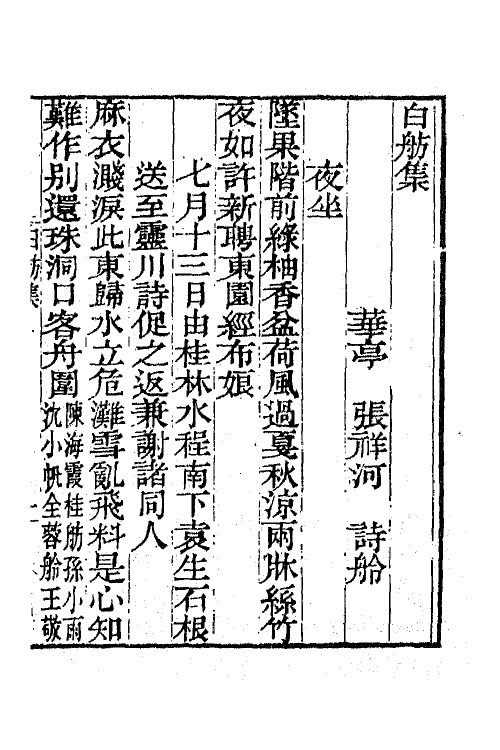 白舫集
華亭　張祥河　詩舲
夜坐
墜果階前綠柚香盆荷風過戛秋涼兩牀絲竹
夜如許新聘東園經布娘
七月十三日由桂林水程南下袁生石根
送至靈川詩促之返兼謝諸同人
麻衣濺淚此東歸水立危灘雪亂飛料是心知
難作別還珠洞口客舟圍
陳海霞桂舫孫小雨
沈小帆全蓉舲王敬
白舫集